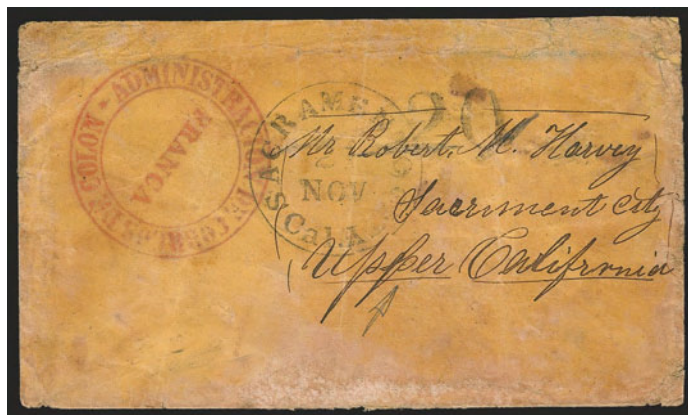 ADMINISTRACION DE CORREOS DE COLON
FRANCA
SACRAMENTO
NOV
Cal.A
20
Mr Robert. M. Harvey
Sacriment City
Upper Califronia